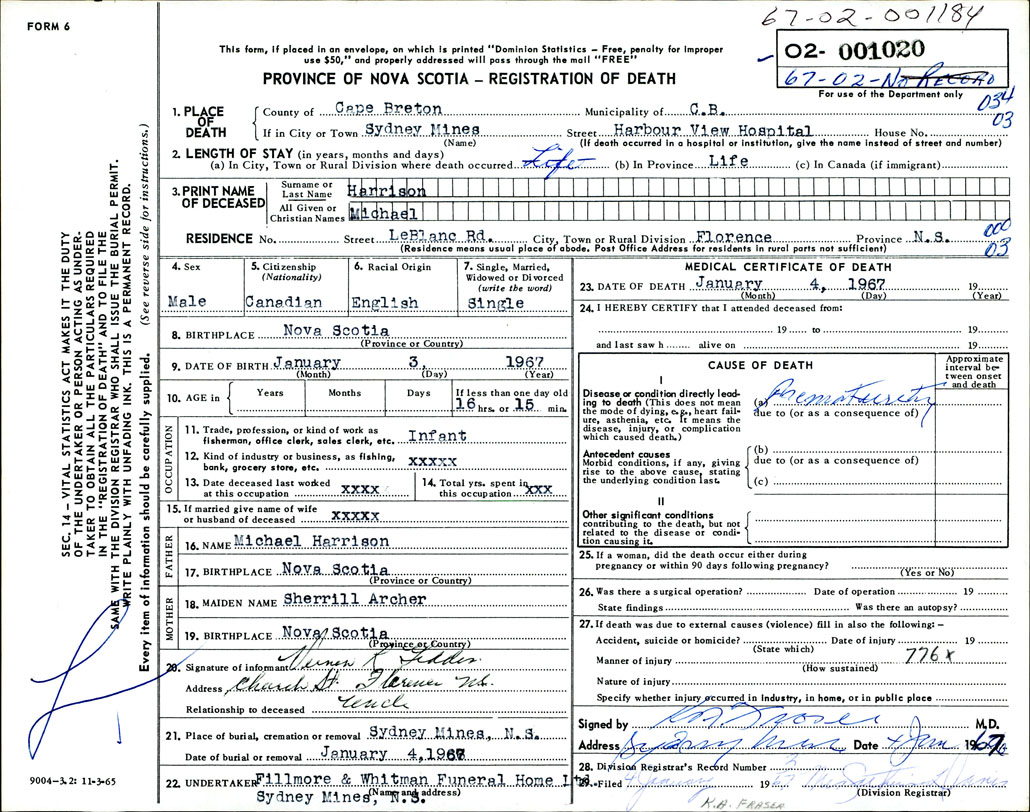 FORM 6
67-02-001184
This form, if placed in an envelope, on which is printed "Dominion Statistics – Free, penalty for improper
use $50," and properly addressed will pass through the mail "FREE"
02- 001020
67-02-No RECORD
For use of the Department only
PROVINCE OF NOVA SCOTIA – REGISTRATION OF DEATH
034
03
1. PLACE OF DEATH
County of Cape Breton Municipality of C.B.
If in City or Town Sydney Mines Street Harbour View Hospital House No.
(Name) (If death occurred in a hospital or institution, give the name instead of street and number)
2. LENGTH OF STAY (in years, months and days)
(a) In City, Town or Rural Division where death occurred Life (b) In Province Life (c) In Canada (if immigrant)
3. PRINT NAME OF DECEASED
Surname or Last Name Harrison
All Given or Christian Names Michael
000
03
RESIDENCE No. Street LeBlanc Rd. City, Town or Rural Division Florence Province N.S.
(Residence means usual place of abode. Post Office Address for residents in rural parts not sufficient)
4. Sex
Male
5. Citizenship
(Nationality)
Canadian
6. Racial Origin
English
7. Single, Married,
Widowed or Divorced
(write the word)
Single
8. BIRTHPLACE Nova Scotia
(Province or Country)
9. DATE OF BIRTH January 3, 1967
(Month) (Day) (Year)
10. AGE in Years Months Days If less than one day old
16 hrs. or 15 min.
OCCUPATION
11. Trade, profession, or kind of work as
fisherman, office clerk, sales clerk, etc. Infant
12. Kind of industry or business, as fishing,
bank, grocery store, etc. xxxxx
13. Date deceased last worked
at this occupation xxxx
14. Total yrs. spent in
this occupation xxx
15. If married give name of wife
or husband of deceased xxxxx
FATHER
16. NAME Michael Harrison
17. BIRTHPLACE Nova Scotia
(Province or Country)
MOTHER
18. MAIDEN NAME Sherrill Archer
19. BIRTHPLACE Nova Scotia
(Province or Country)
20. Signature of informant
Address Church St. Florence N.S.
Relationship to deceased Uncle
21. Place of burial, cremation or removal Sydney Mines, N.S.
Date of burial or removal January 4, 1967
22. UNDERTAKER Fillmore & Whitman Funeral Home Ltd.
(Name and address)
Sydney Mines, N.S.
MEDICAL CERTIFICATE OF DEATH
23. DATE OF DEATH January 4, 1967 19
(Month) (Day) (Year)
24. I HEREBY CERTIFY that I attended deceased from:
19 to 19
and last saw h alive on 19
CAUSE OF DEATH
Approximate
interval be-
tween onset
and death
I
Disease or condition directly lead-
ing to death (This does not mean
the mode of dying, e.g., heart fail-
ure, asthenia, etc. It means the
disease, injury, or complication
which caused death.)
(a) Prematurity
due to (or as a consequence of)
Antecedent causes
Morbid conditions, if any, giving
rise to the above cause, stating
the underlying condition last.
(b)
due to (or as a consequence of)
(c)
II
Other significant conditions
contributing to the death, but not
related to the disease or condi-
tion causing it.
25. If a woman, did the death occur either during
pregnancy or within 90 days following pregnancy?
(Yes or No)
26. Was there a surgical operation? Date of operation 19
State findings Was there an autopsy?
27. If death was due to external causes (violence) fill in also the following: –
Accident, suicide or homicide? Date of injury 19
(State which)
776x
Manner of injury
(How sustained)
Nature of injury
Specify whether injury occurred in industry, in home, or in public place
Signed by M.D.
Address Sydney Mines Date 4 Jan 1967
28. Division Registrar's Record Number 3
29. Filed 4 January 1967
(Division Registrar)
K.A. FRASER
SEC. 14 – VITAL STATISTICS ACT MAKES IT THE DUTY
OF THE UNDERTAKER OR PERSON ACTING AS UNDER-
TAKER TO OBTAIN ALL THE PARTICULARS REQUIRED
IN THE "REGISTRATION OF DEATH" AND TO FILE THE
SAME WITH THE DIVISION REGISTRAR WHO SHALL ISSUE THE BURIAL PERMIT.
WRITE PLAINLY WITH UNFADING INK. THIS IS A PERMANENT RECORD.
Every item of information should be carefully supplied. (See reverse side for instructions.)
9004-3.2: 11-3-65